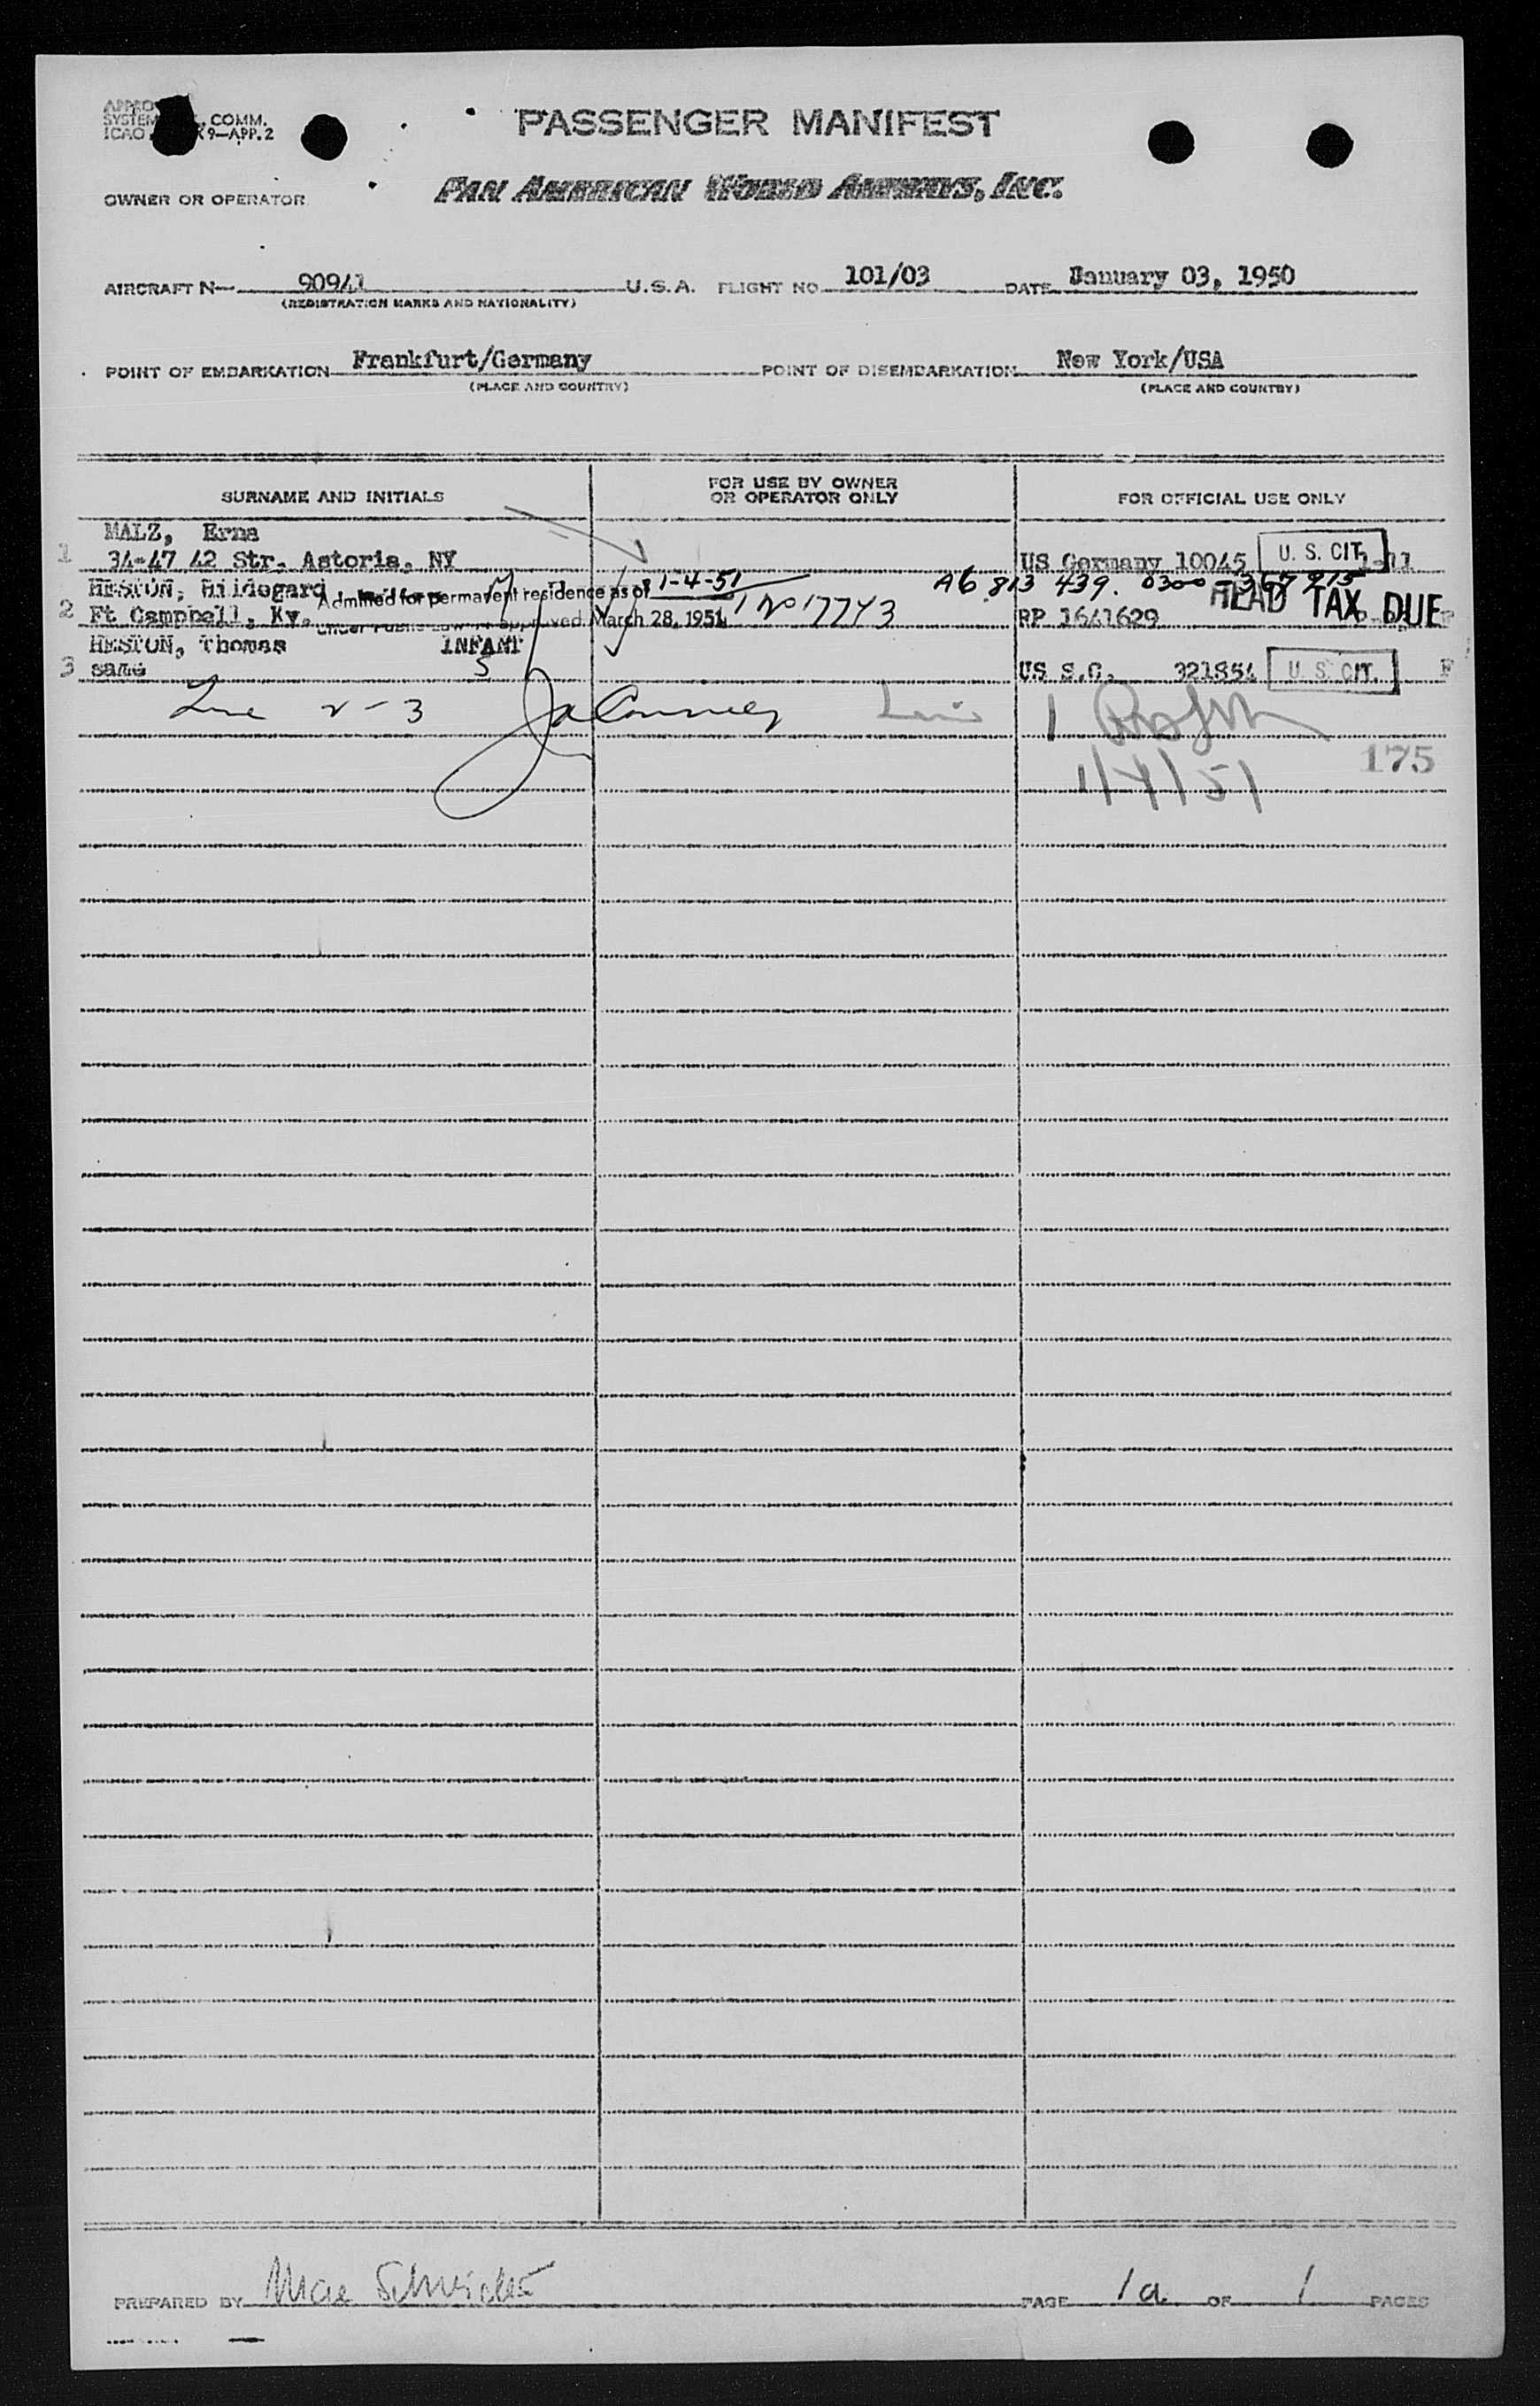 PASSENGER MANIFEST
COMM.
9-APP.2
OWNER OR OPERATOR PAN AMERICAN WORLD AIRWAYS, INC.
AIRCRAFT N- 90941 U.S.A. FLIGHT NO 101/03 DATE January 03, 1950
(REGISTRATION MARKS AND NATIONALITY)
POINT OF EMBARKATION Frankfurt/Germany POINT OF DISEMBARKATION New York/USA
(PLACE AND COUNTRY) (PLACE AND COUNTRY)
SURNAME AND INITIALS
FOR USE BY OWNER
OR OPERATOR ONLY
FOR OFFICIAL USE ONLY
MALZ, Erna
1 34-47 42 Str. Astoria, NY US Germany 10045 U. S. CIT. 1-11
HESTON, Hildegard Admitted for permanent residence as of 1-4-51 A6 813 439. 0300-367 915
2 Ft Campbell, Ky. approved March 28, 1951 No 17743 RP 1641629 HEAD TAX DUE
HESTON, Thomas INFANT
3 same 5 US S.C. 321854 U. S. CIT. F
Line 2-3 Line 1
1/4/51 175
PREPARED BY PAGE 1a OF 1 PAGES